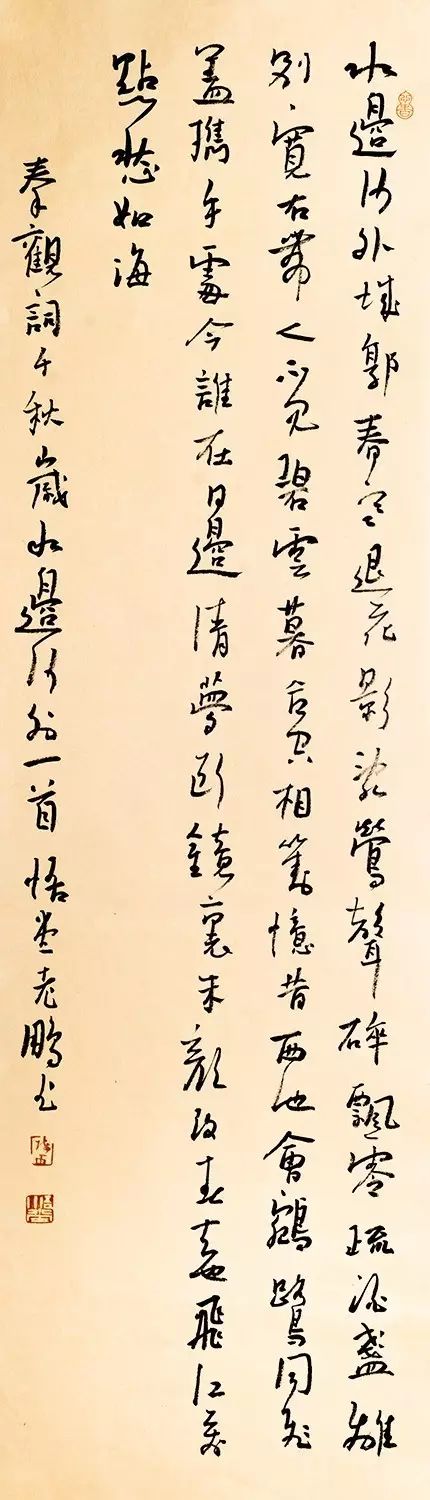 水邊沙外城郭春寒退花影亂鶯聲碎飄零疏酒盞離
別寬衣帶人不見碧雲暮合空相對憶昔西池會鵷鷺同飛
蓋攜手處今誰在日邊清夢斷鏡裏朱顏改春去也飛紅萬
點愁如海
秦觀詞千秋歲水邊沙外一首 悟堂老鵬書